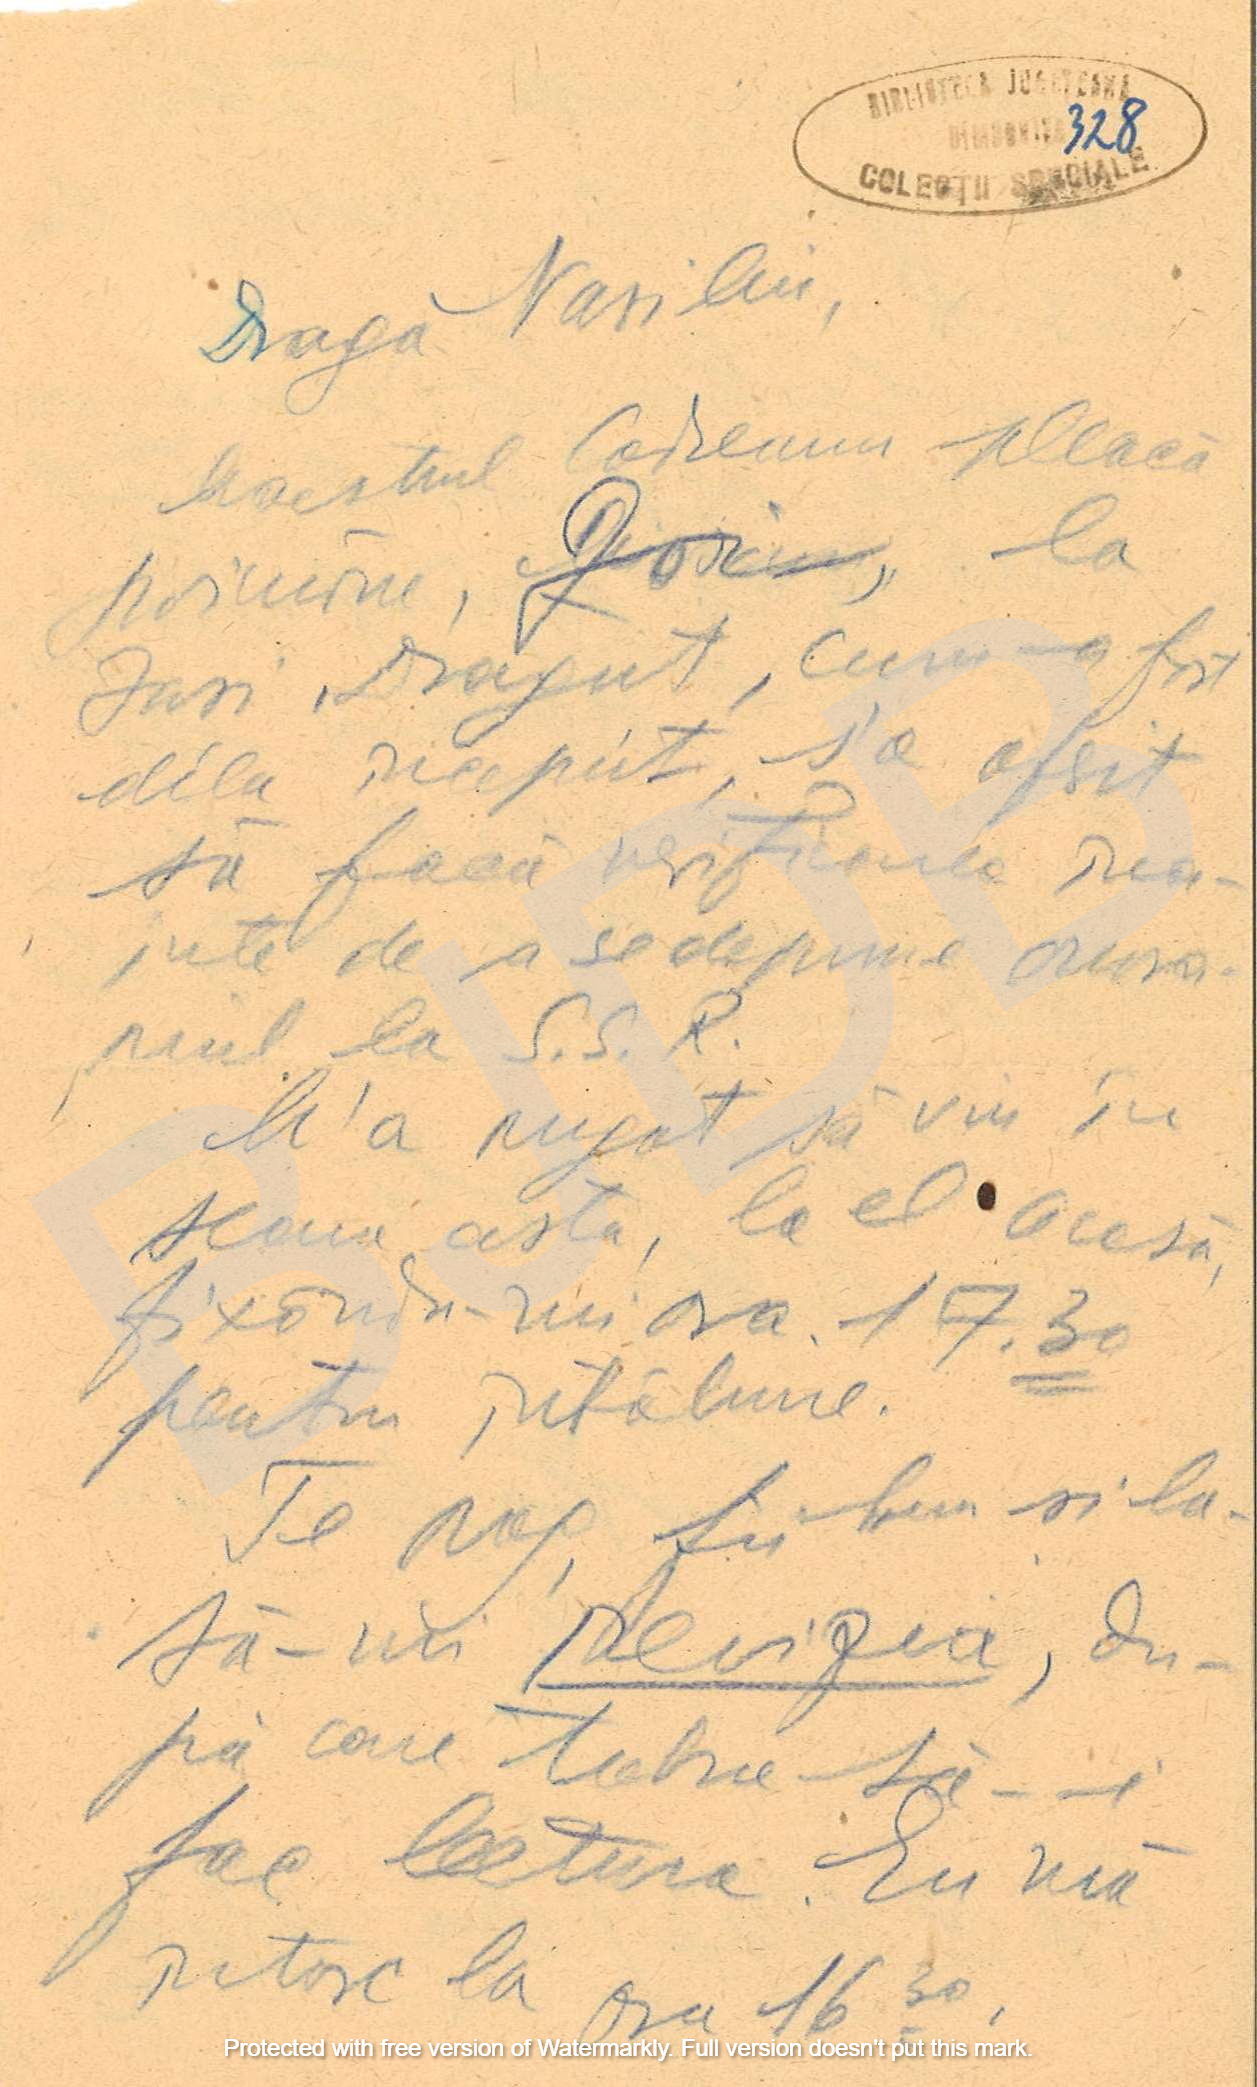 BIBLIOTECA JUDEȚEANĂ
DÎMBOVIȚA
328
COLECȚII SPECIALE
Dragă Vasiliu,
Maestrul Codreanu pleacă
poimâne, la
Iași. Drăguț, cum a fost
dela început, s'a oferit
să facă verificarea îna-
inte de a se depune onora-
riul la S.S.R.
M'a rugat să viu în
seara asta, la el acasă,
fixându-mi ora 17.30
pentru întâlnire.
Te rog, fii bun și la-
să-mi Revizia, du-
pă care trebue să-i
fac lectura. Eu mă
întorc la ora 16 30.
BJDB
Protected with free version of Watermarkly. Full version doesn't put this mark.